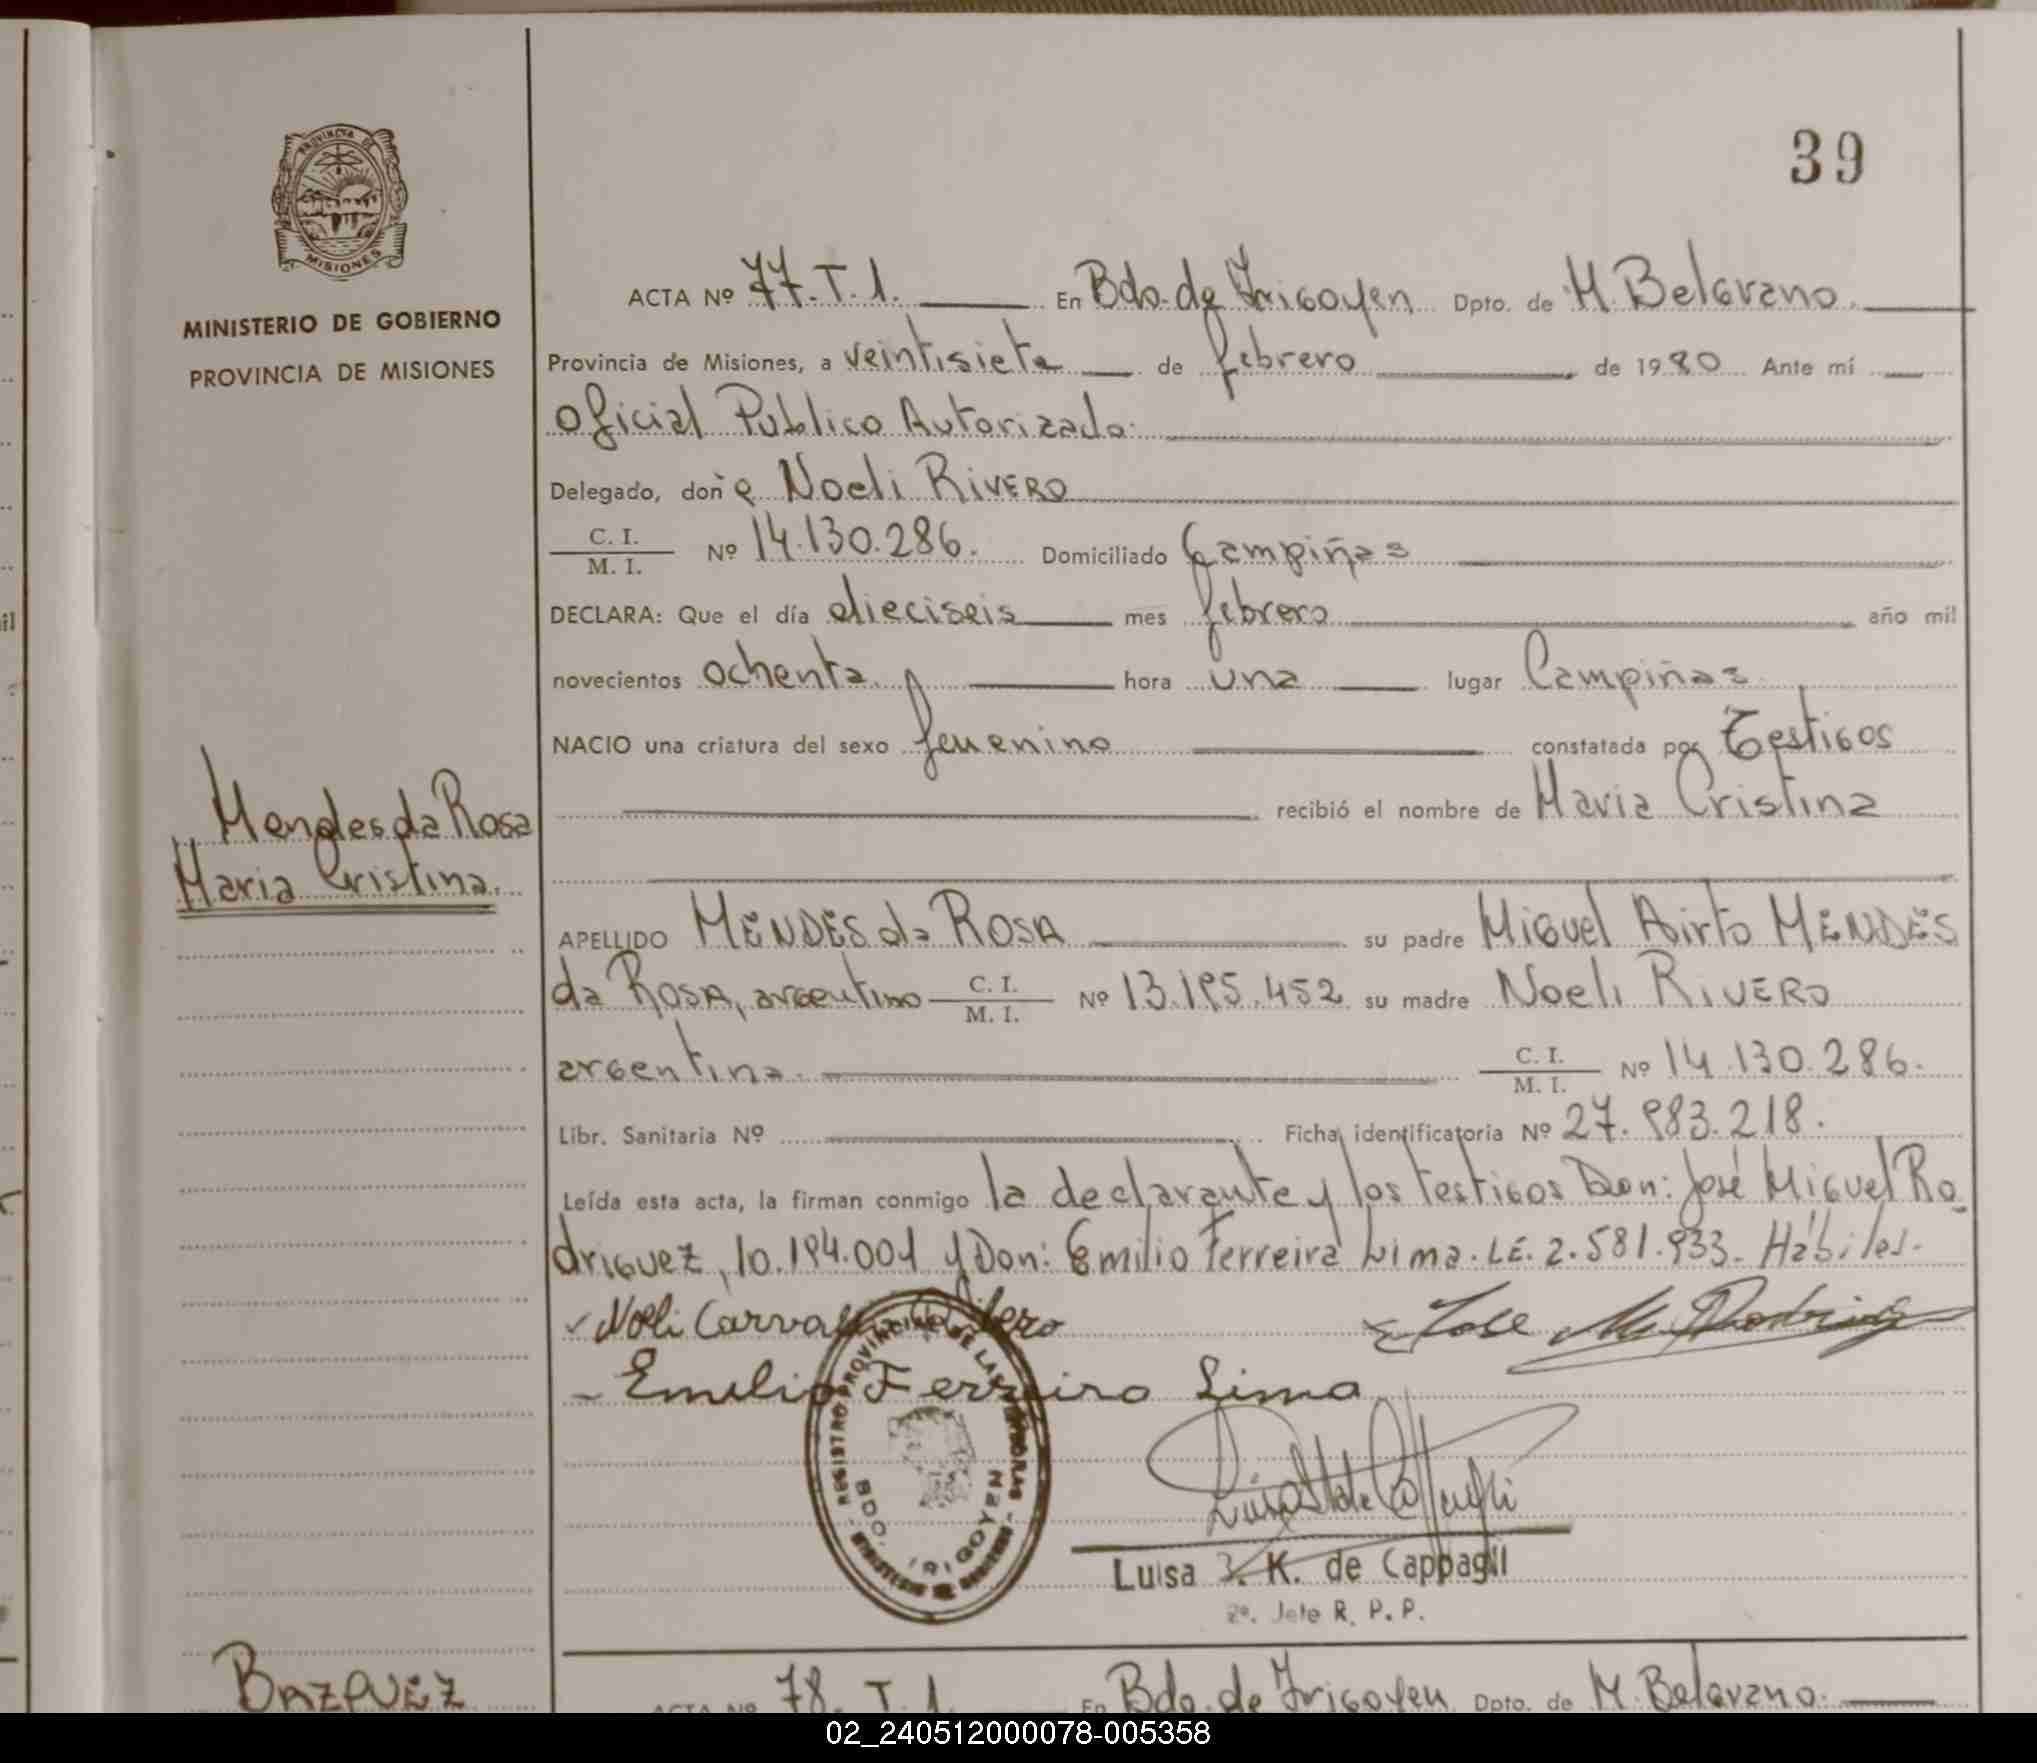 39
PROVINCIA DE
MISIONES
MINISTERIO DE GOBIERNO
PROVINCIA DE MISIONES
ACTA Nº 77.T.1. En Bdo. de Irigoyen Dpto. de M. Belgrano
Provincia de Misiones, a veintisiete de febrero de 1980 Ante mí
Oficial Publico Autorizado
Delegado, doña Noeli RIVERO
C. I.
M. I.
Nº 14.130.286. Domiciliado Campiñas
DECLARA: Que el día dieciseis mes febrero año mil
novecientos ochenta hora una lugar Campiñas
NACIO una criatura del sexo femenino constatada por Testigos
recibió el nombre de Maria Cristina
Mendes da Rosa
Maria Cristina.
APELLIDO MENDES da ROSA su padre Miguel Airto MENDES
da ROSA, argentino C. I. / M. I. Nº 13.195.452 su madre Noeli RIVERO
argentina. C. I. / M. I. Nº 14.130.286.
Libr. Sanitaria Nº Ficha identificatoria Nº 27.983.218.
Leída esta acta, la firman conmigo la declarante y los testigos Don: José Miguel Ro
driguez, 10.194.001 y Don: Emilio Ferreira Lima. LE. 2.581.933. Hábiles.
Noeli
Jose M. Rodriguez
Emilio Ferreira Lima
REGISTRO PROVINCIAL DE LAS PERSONAS
BDO. IRIGOYEN
Luisa K. de Cappagli
2º. Jefe R. P. P.
BAZQUEZ
ACTA Nº 78. T. 1. En Bdo. de Irigoyen Dpto. de M. Belgrano.
02_240512000078-005358